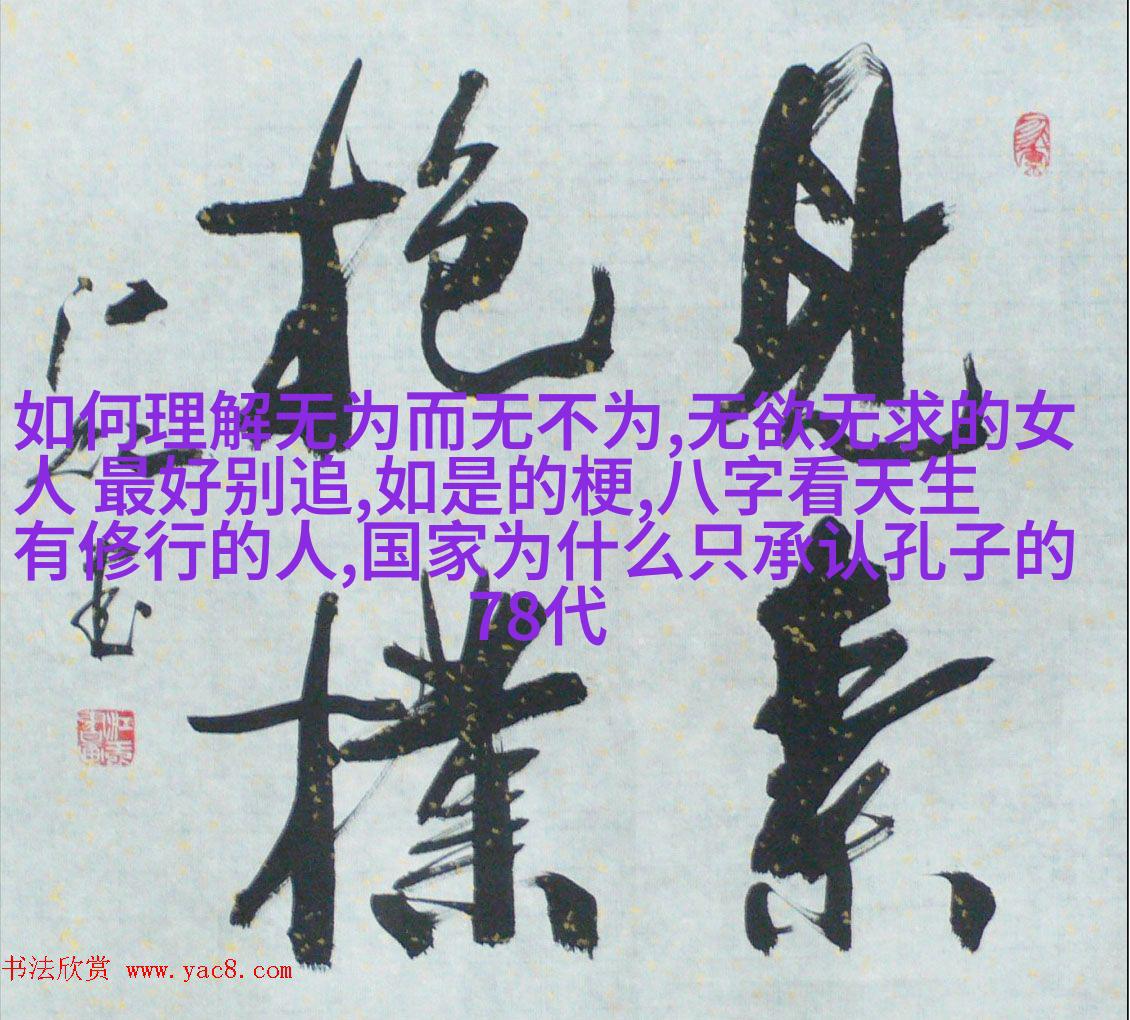 見素
抱樸
如何理解无为而无不为,无欲无求的女
人 最好别追,如是的梗,八字看天生
有修行的人,国家为什么只承认孔子的
78代
书法欣赏 www.yac8.com